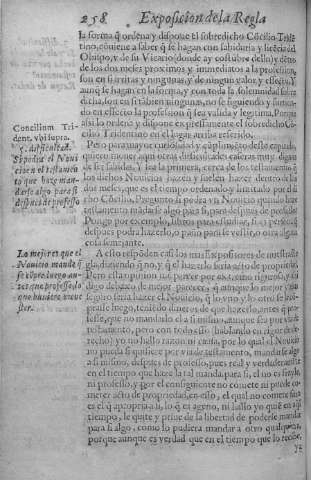 258 Exposicion de la Regla
la forma q̃ ordena y dispone el sobredicho Cõcilio Tridẽ-
tino, conuiene a saber q̃ se hagan con sabiduria y licẽcia
Obispo, y de su Vicario donde ay costũbre dello y dẽtro
de los dos meses proximos y immediatos a la profession,
son en si irritas y ningunas, y de ningun valor y effecto. Y
aunq̃ se hagan en la forma, y con toda la solemnidad sobre
dicha, son en si tãbien ningunas, no se siguiendo y
do en effecto la profession q̃ sea valida y legitima. Porq̃
assi lo ordena y dispone expressamente el sobredicho Cõ-
cilio Tridentino en el lugar arriba referido.
Concilium Tri-
dent. vbi supra.
Pero para mayor curiosidad y cũplimiẽto de
quiero mouer aqui otras difficultades caseras muy dignas
de ser sabidas. Y sea la primera, cerca de los testamentos
los dichos Nouicios hazen y suelen hazer dentro de los
dos meses, que es el tiempo ordenado y limitado por el
cho Cõcilio. Pregunto si podra vn Nouicio quando haze
testamento mandarse algo para si, para despues de professo
Pongo por exemplo, libros para estudiar,
despues podra hazerlo, o en otra qualquiera
cosa semejante.
5. difficultad.
Si podra el Noui
cio en el testamen
to que haze man-
darse algo para si
despues de professo
A esto respõden casi los mas Expositores de nuestra Re-
gla, diziendo q̃ no, y q̃ si lo haze seria acto de propriedad.
Pero esta opinion me parece por extremo rigurosa, y assi
digo debaxo de mejor parecer, q̃ aunque lo mejor
seguro seria hazer el Nouicio, q̃ lo vno y lo otro se
prasse luego, teniẽdo dineros de que hazerlo, antes q̃ pro-
fesse, que no mandarlo a si mismo, aunque sea por via de
testamento, pero con todo esso (hablando en rigor de de-
recho) yo no hallo razon ni causa, por lo qual el Nouicio
no pueda si quisiere por via de testamento, mandarse algo
a si mismo, despues de professo, pues real y verdaderamẽte
en el tiempo que haze la tal manda para si, el no es frayle,
ni professo, y por el consiguiente no comete ni puede co-
meter acto de propriedad, en esso, el qual no comete sino
es el q̃ apropria a si, lo q̃ es ageno, ni hallo yo quẽ en este
tiempo, le quite y priue de la libertad de poderle mandar
para si algo, como lo pudiera mandar a otro qualquiera,
porque aunque es verdad que en el tiempo que lo recibe,
Lo mejor es que el
Nouicio mande q̃
se cõpre luego an-
tes que professe, lo
que huuiere menes
ter.